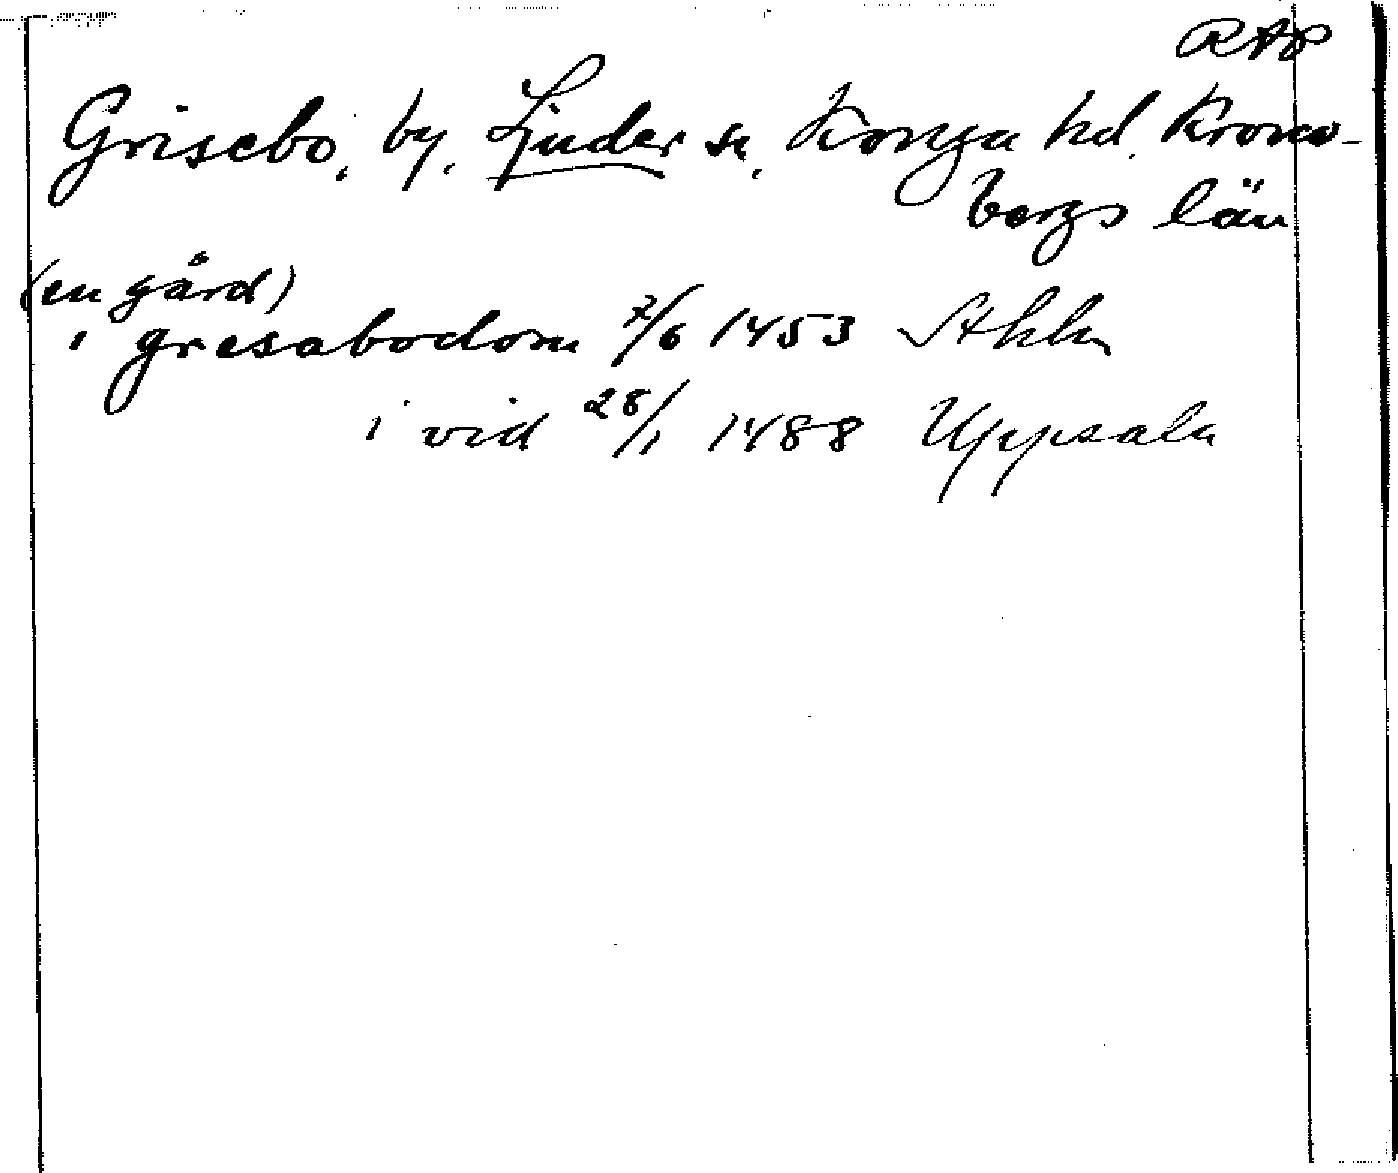 RAP
Grisebo, by, Ljuder sn, Konga hd. Krono-
bergs län
(en gård)
i gresabodom 7/6 1453 Sthlm
i vid 28/1 1488 Uppsala